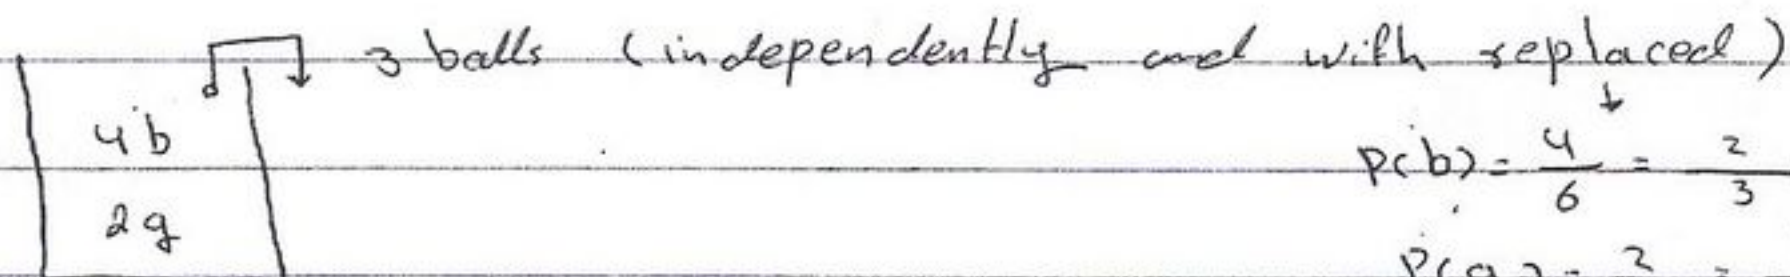 3 balls (independently and with replaced)
4b
P(b) = 4/6 = 2/3
2g
P(g) = 2 =